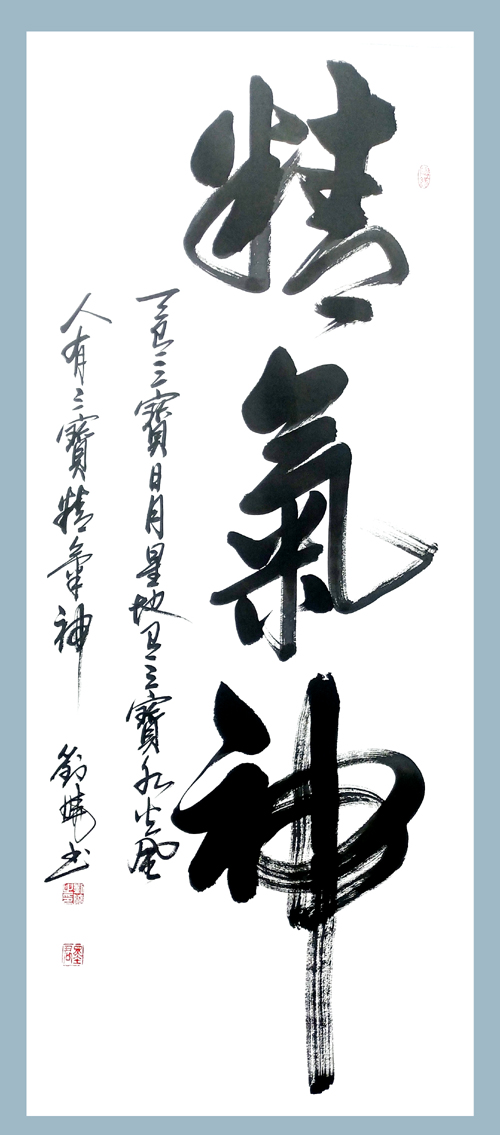 精氣神
天有三寶日月星地有三寶水火風
人有三寶精氣神
書